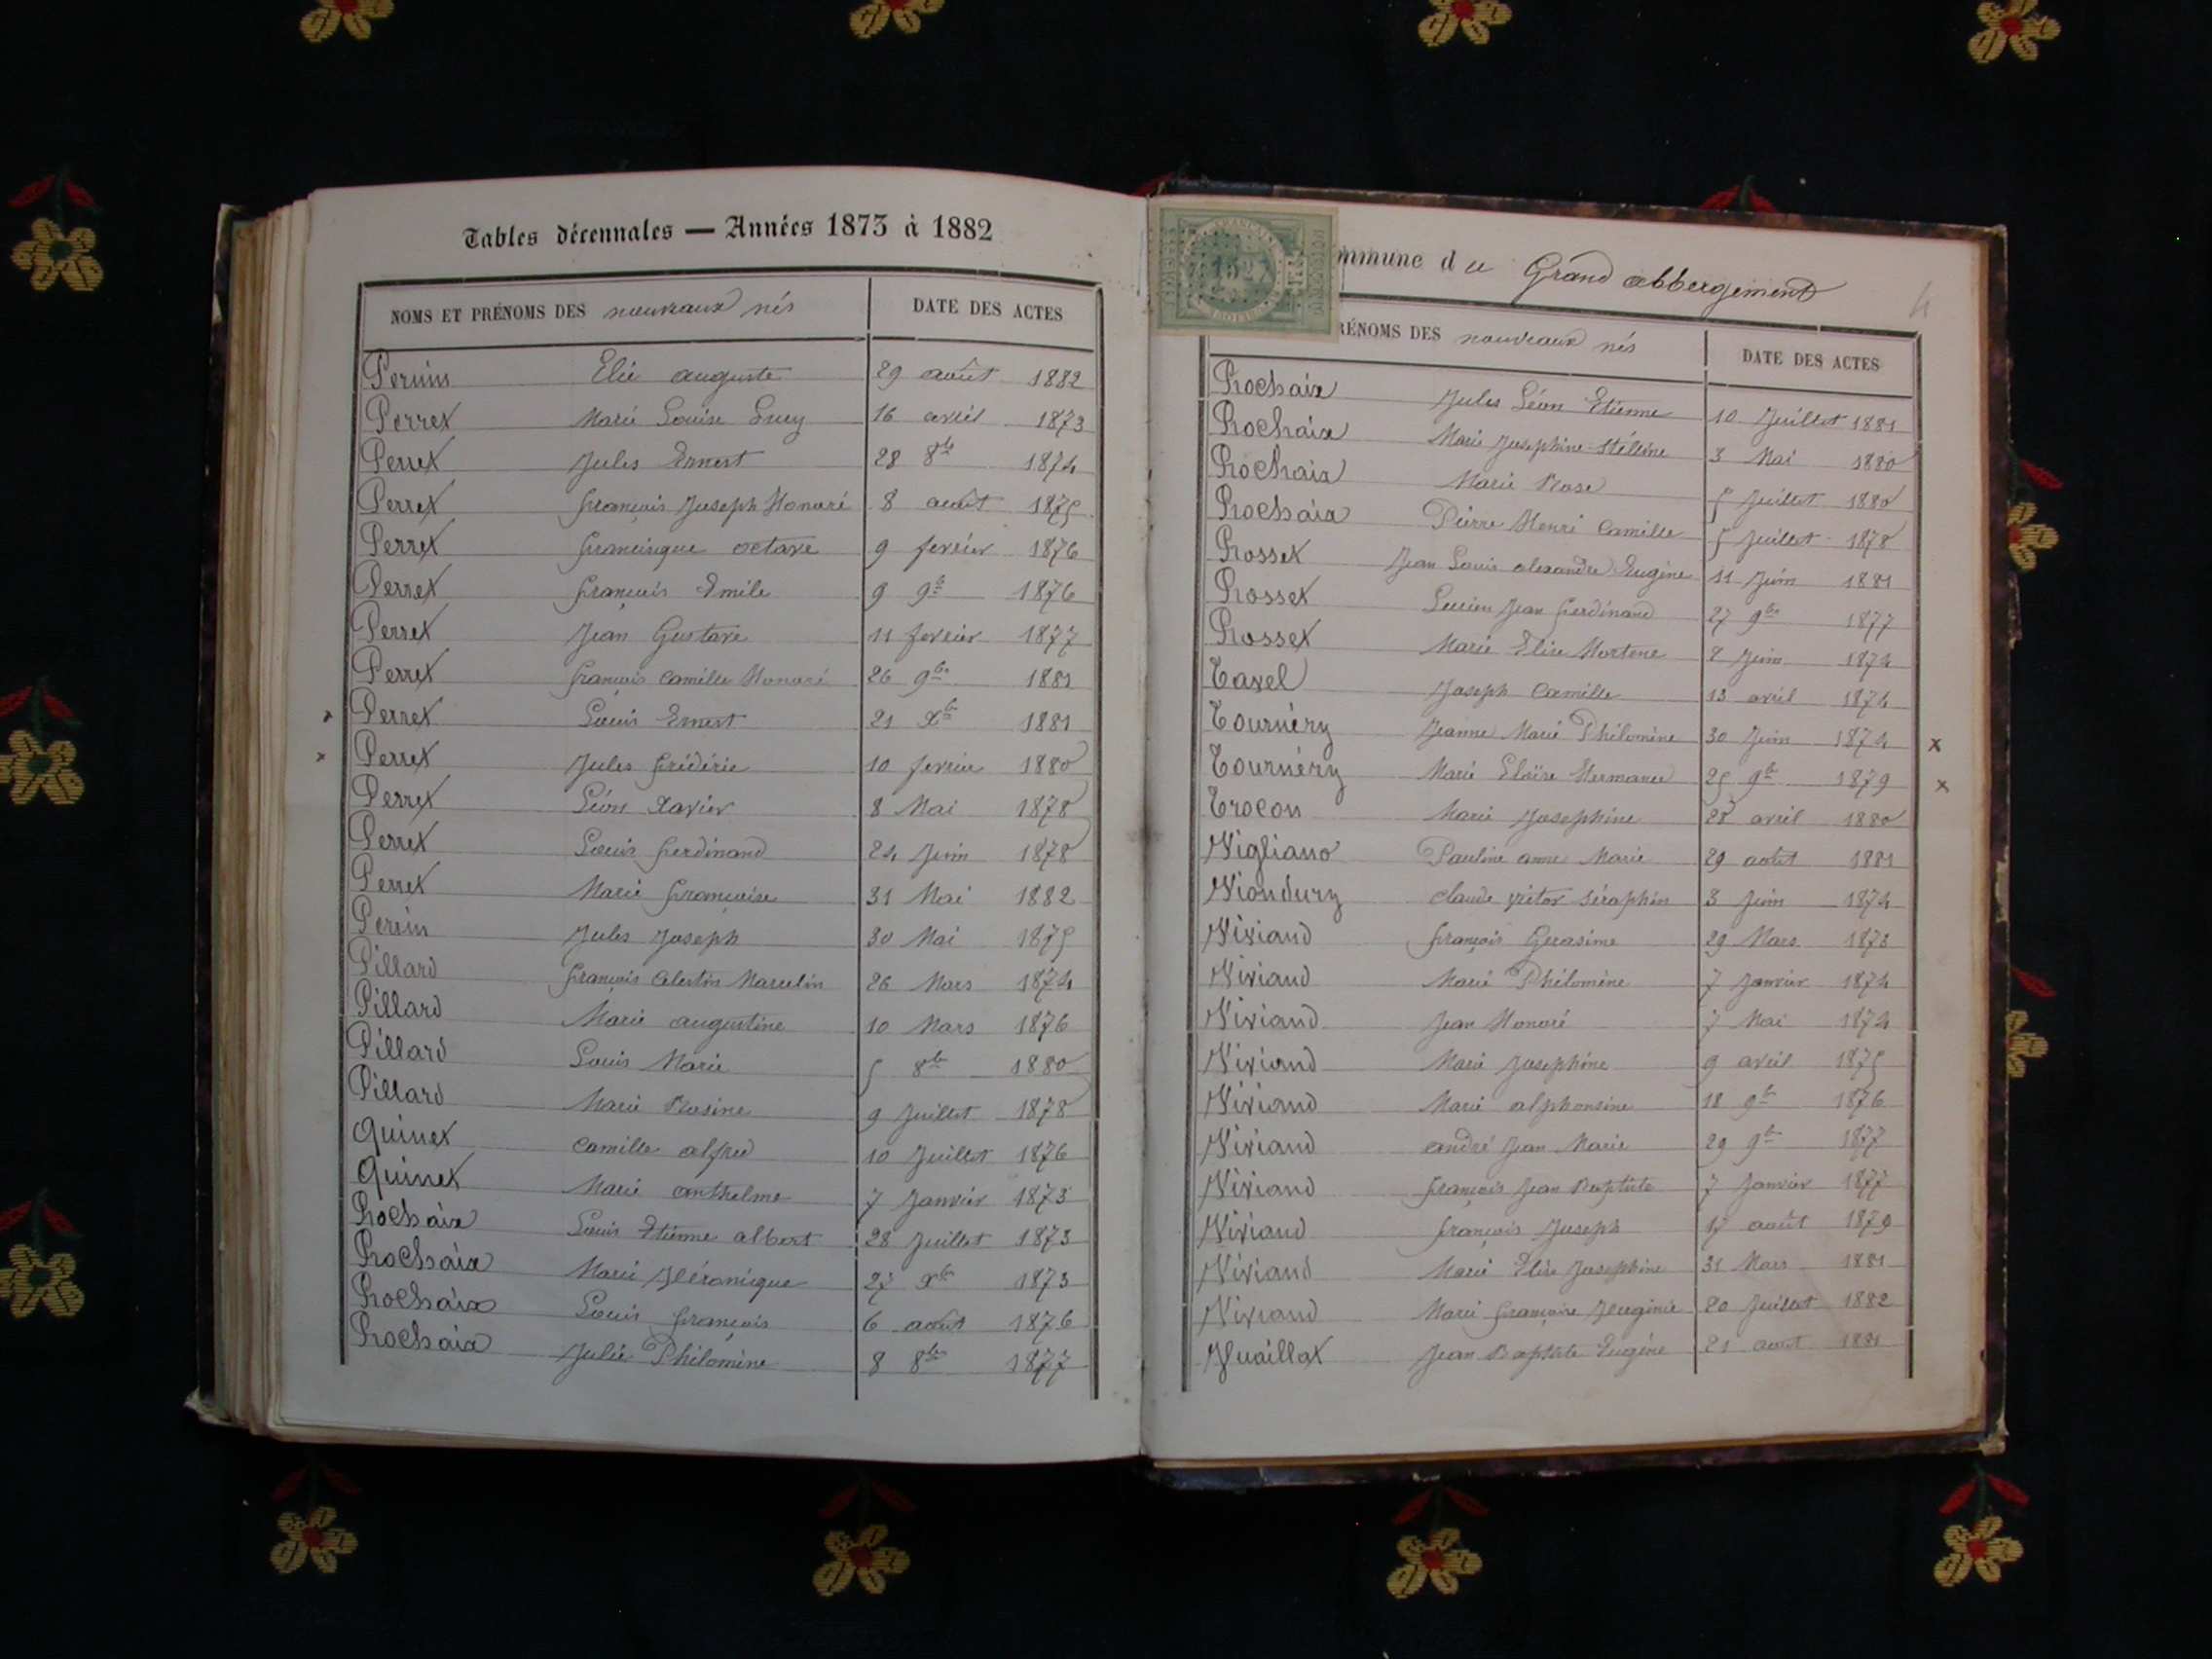 Tables décennales — Années 1873 à 1882
NOMS ET PRÉNOMS DES nouveaux nés DATE DES ACTES
Perrin Elie auguste 29 août 1882
Perret Marie Louise Lucy 16 avril 1873
Perret Jules Ernest 28 8bre 1874
Perret françois Joseph Honoré 8 août 1875
Perret francisque octave 9 fevrier 1876
Perret françois Emile 9 9bre 1876
Perret Jean Gustave 11 fevrier 1877
Perret françois camille Honoré 26 9bre 1881
x Perret Louis Ernest 21 Xbre 1881
x Perret Jules frédéric 10 fevrier 1880
Perret Léon Xavier 8 Mai 1878
Perret Louis ferdinand 24 Juin 1878
Perret Marie françoise 31 Mai 1882
Perrin Jules Joseph 30 Mai 1875
Pillard françois celestin Marcelin 26 Mars 1874
Pillard Marie augustine 10 Mars 1876
Pillard Louis Marie 5 8bre 1880
Pillard Marie Rosine 9 Juillet 1878
Quinet camille alfred 10 Juillet 1876
Quinet Marie anthelme 7 Janvier 1873
Rochaix Louis Etienne albert 28 Juillet 1873
Rochaix Marie Véronique 27 Xbre 1873
Rochaix Louis françois 6 août 1876
Rochaix Julie Philomène 8 8bre 1877
1527
mmune du Grand abbergement
4
RÉNOMS DES nouveaux nés DATE DES ACTES
Rochaix Jules Léon Etienne 10 Juillet 1881
Rochaix Marie Josephine 3 Mai 1880
Rochaix Marie Rose 5 Juillet 1880
Rochaix Pierre Henri Camille 5 Juillet 1878
Rosset Jean Louis alexandre Eugène 11 Juin 1881
Rosset Lucien Jean ferdinand 27 9bre 1877
Rosset Marie Elise Hortene 8 Juin 1874
Tavel Joseph Camille 13 avril 1874
Tournéry Jeanne Marie Philomène 30 Juin 1874 x
Tournéry Marie Eloïse Hermance 25 9bre 1879 x
Trocon Marie Josephine 28 avril 1880
Vigliano Pauline anne Marie 29 août 1881
Viondury claude victor séraphin 3 Juin 1874
Viviand françois Gerasime 29 Mars 1873
Viviand Marie Philomène 7 Janvier 1874
Viviand Jean Honoré 7 Mai 1874
Viviand Marie Josephine 9 avril 1875
Viviand Marie alphonsine 18 9bre 1876
Viviand andré Jean Marie 29 9bre 1877
Viviand françois Jean Baptiste 7 Janvier 1877
Viviand françois Joseph 17 août 1879
Viviand Marie Elise Josephine 31 Mars 1881
Viviand Marie françoise Eugénie 20 Juillet 1882
Vuaillat Jean Baptiste Eugène 21 aout 1881